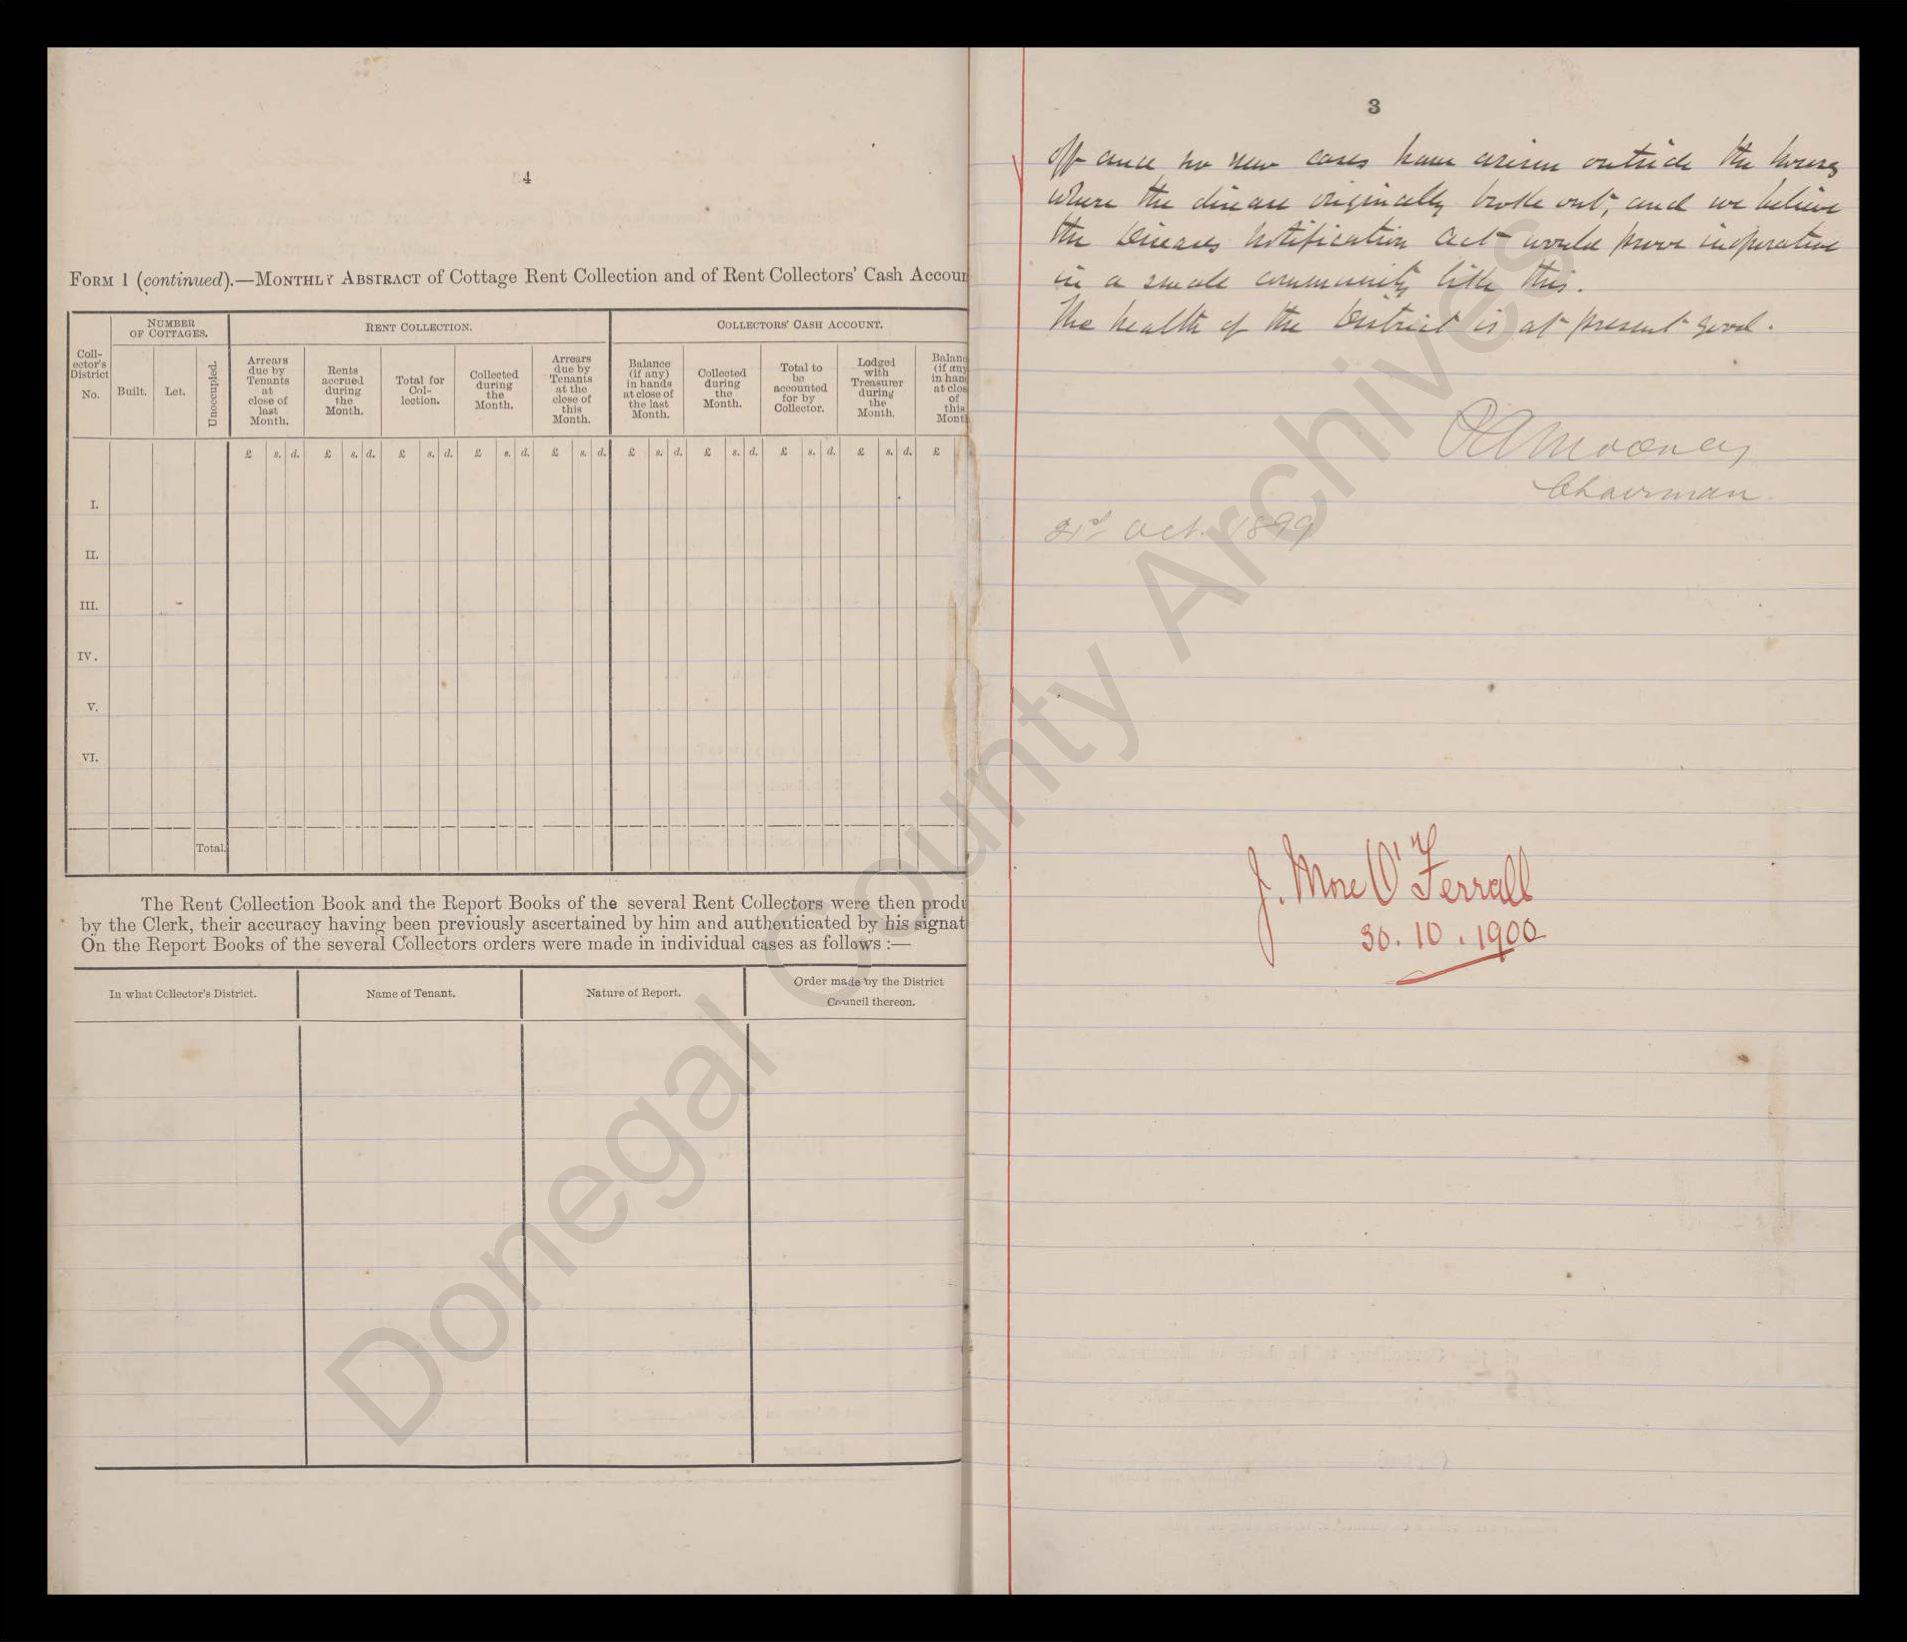 4
FORM 1 (continued).—MONTHLY ABSTRACT of Cottage Rent Collection and of Rent Collectors' Cash Accoun
Collector's District No.
NUMBER OF COTTAGES.
RENT COLLECTION.
COLLECTORS' CASH ACCOUNT.
Built.
Let.
Unoccupied.
Arrears due by Tenants at close of last Month.
Rents accrued during the Month.
Total for Collection.
Collected during the Month.
Arrears due by Tenants at the close of this Month.
Balance (if any) in hands at close of the last Month.
Collected during the Month.
Total to be accounted for by Collector.
Lodged with Treasurer during the Month.
Balanc (if any in han at clos of this Mont
£ s. d. £ s. d. £ s. d. £ s. d. £ s. d. £ s. d. £ s. d. £ s. d. £ s. d. £
I.
II.
III.
IV.
V.
VI.
Total.
The Rent Collection Book and the Report Books of the several Rent Collectors were then produ
by the Clerk, their accuracy having been previously ascertained by him and authenticated by his signat
On the Report Books of the several Collectors orders were made in individual cases as follows :—
In what Collector's District.
Name of Tenant.
Nature of Report.
Order made by the District Council thereon.
3
off and no new cases have arisen outside the houses
where the disease originally broke out, and we believe
the Diseases Notification Act would prove inoperative
in a small community like this.
The health of the District is at present good.
Mooney
Chairman
21st Oct. 1899
J. More O'Ferrall
30.10.1900
Donegal County Archives